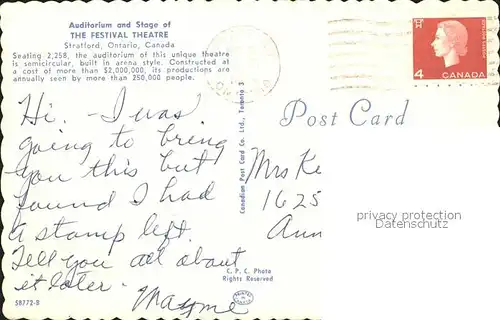 Auditorium and Stage of
THE FESTIVAL THEATRE
Stratford, Ontario, Canada
Seating 2,258, the auditorium of this unique theatre
is semicircular, built in arena style. Constructed at
a cost of more than $2,000,000, its productions are
annually seen by more than 250,000 people.
Hi. - I was
going to bring
you this but
found I had
a stamp left.
Tell you all about
it later.
Mayme
C. P. C. Photo
Rights Reserved
S8772-B
Canadian Post Card Co. Ltd., Toronto 3
Post Card
4
CANADA
Mrs Ke
1625
Ann
privacy protection
Datenschutz